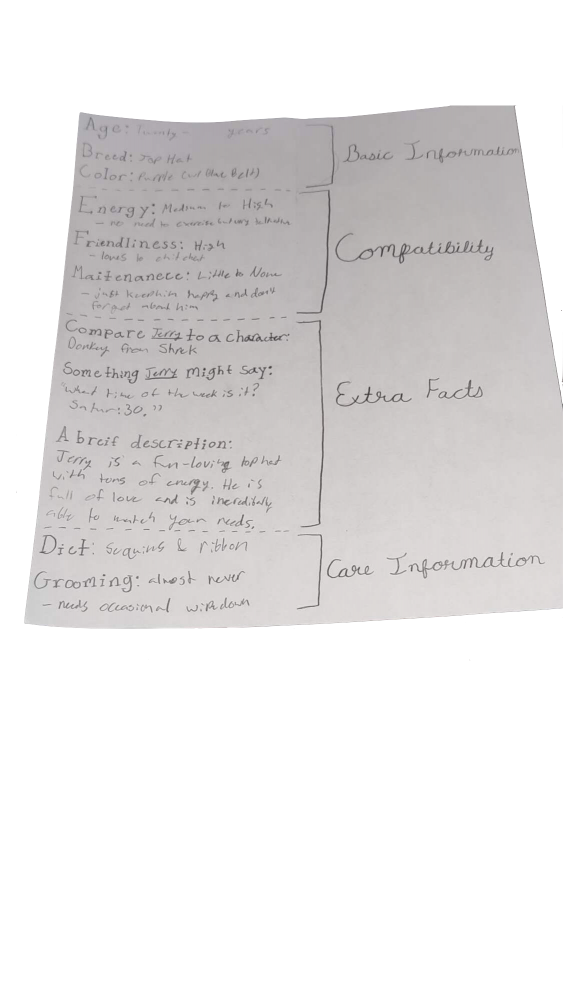 Age: Twenty- years
Breed: Top Hat
Color: Purple (w/ Blue Belt)
Basic Information
Energy: Medium to High
- no need to exercise but very
Friendliness: High
- loves to chit chat
Maitenanece: Little to None
- just keep him happy and don't
forget about him
Compatibility
Compare Jerry to a character:
Donkey from Shrek
Something Jerry might say:
"What time of the week is it?
Satur:30."
A breif description:
Jerry is a fun-loving top hat
with tons of energy. He is
full of love and is incredibly
able to match your needs.
Extra Facts
Diet: Sequins & ribbon
Grooming: almost never
- needs occasional wipedown
Care Information